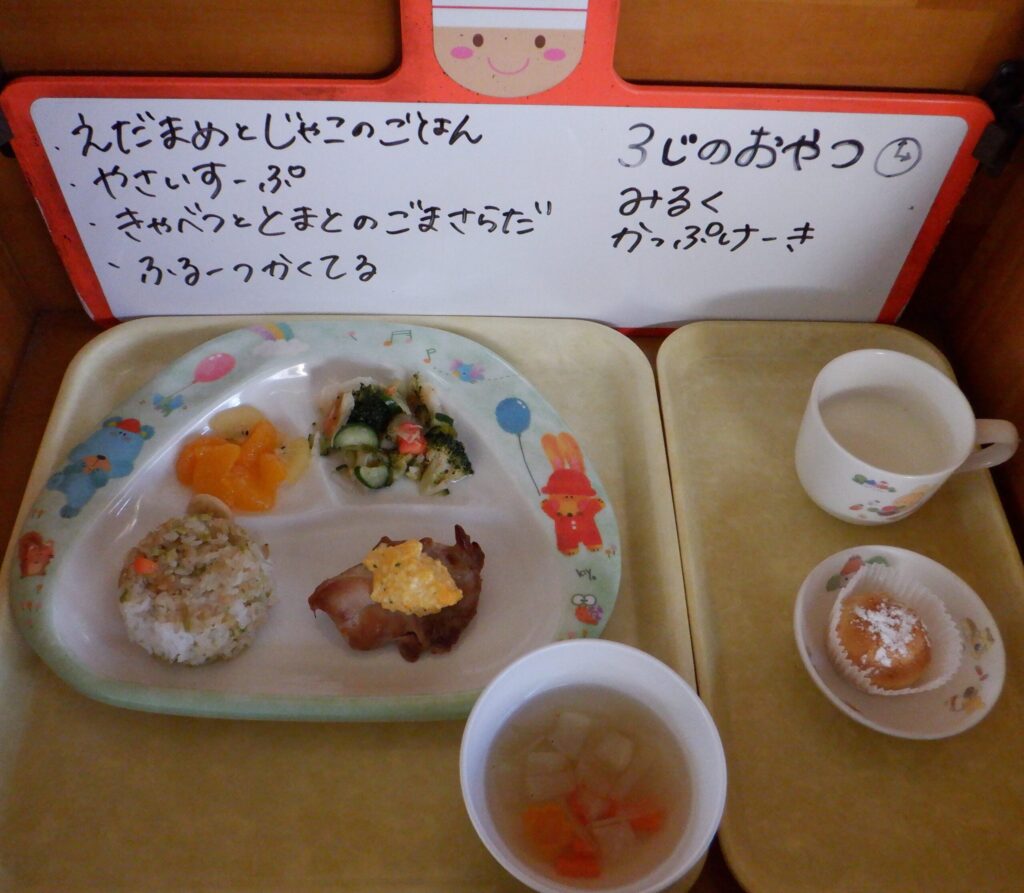 ・えだまめとじゃこのごはん
・やさいすーぷ
・きゃべつととまとのごまさらだ
・ふるーつかくてる
3じのおやつ
みるく
かっぷけーき